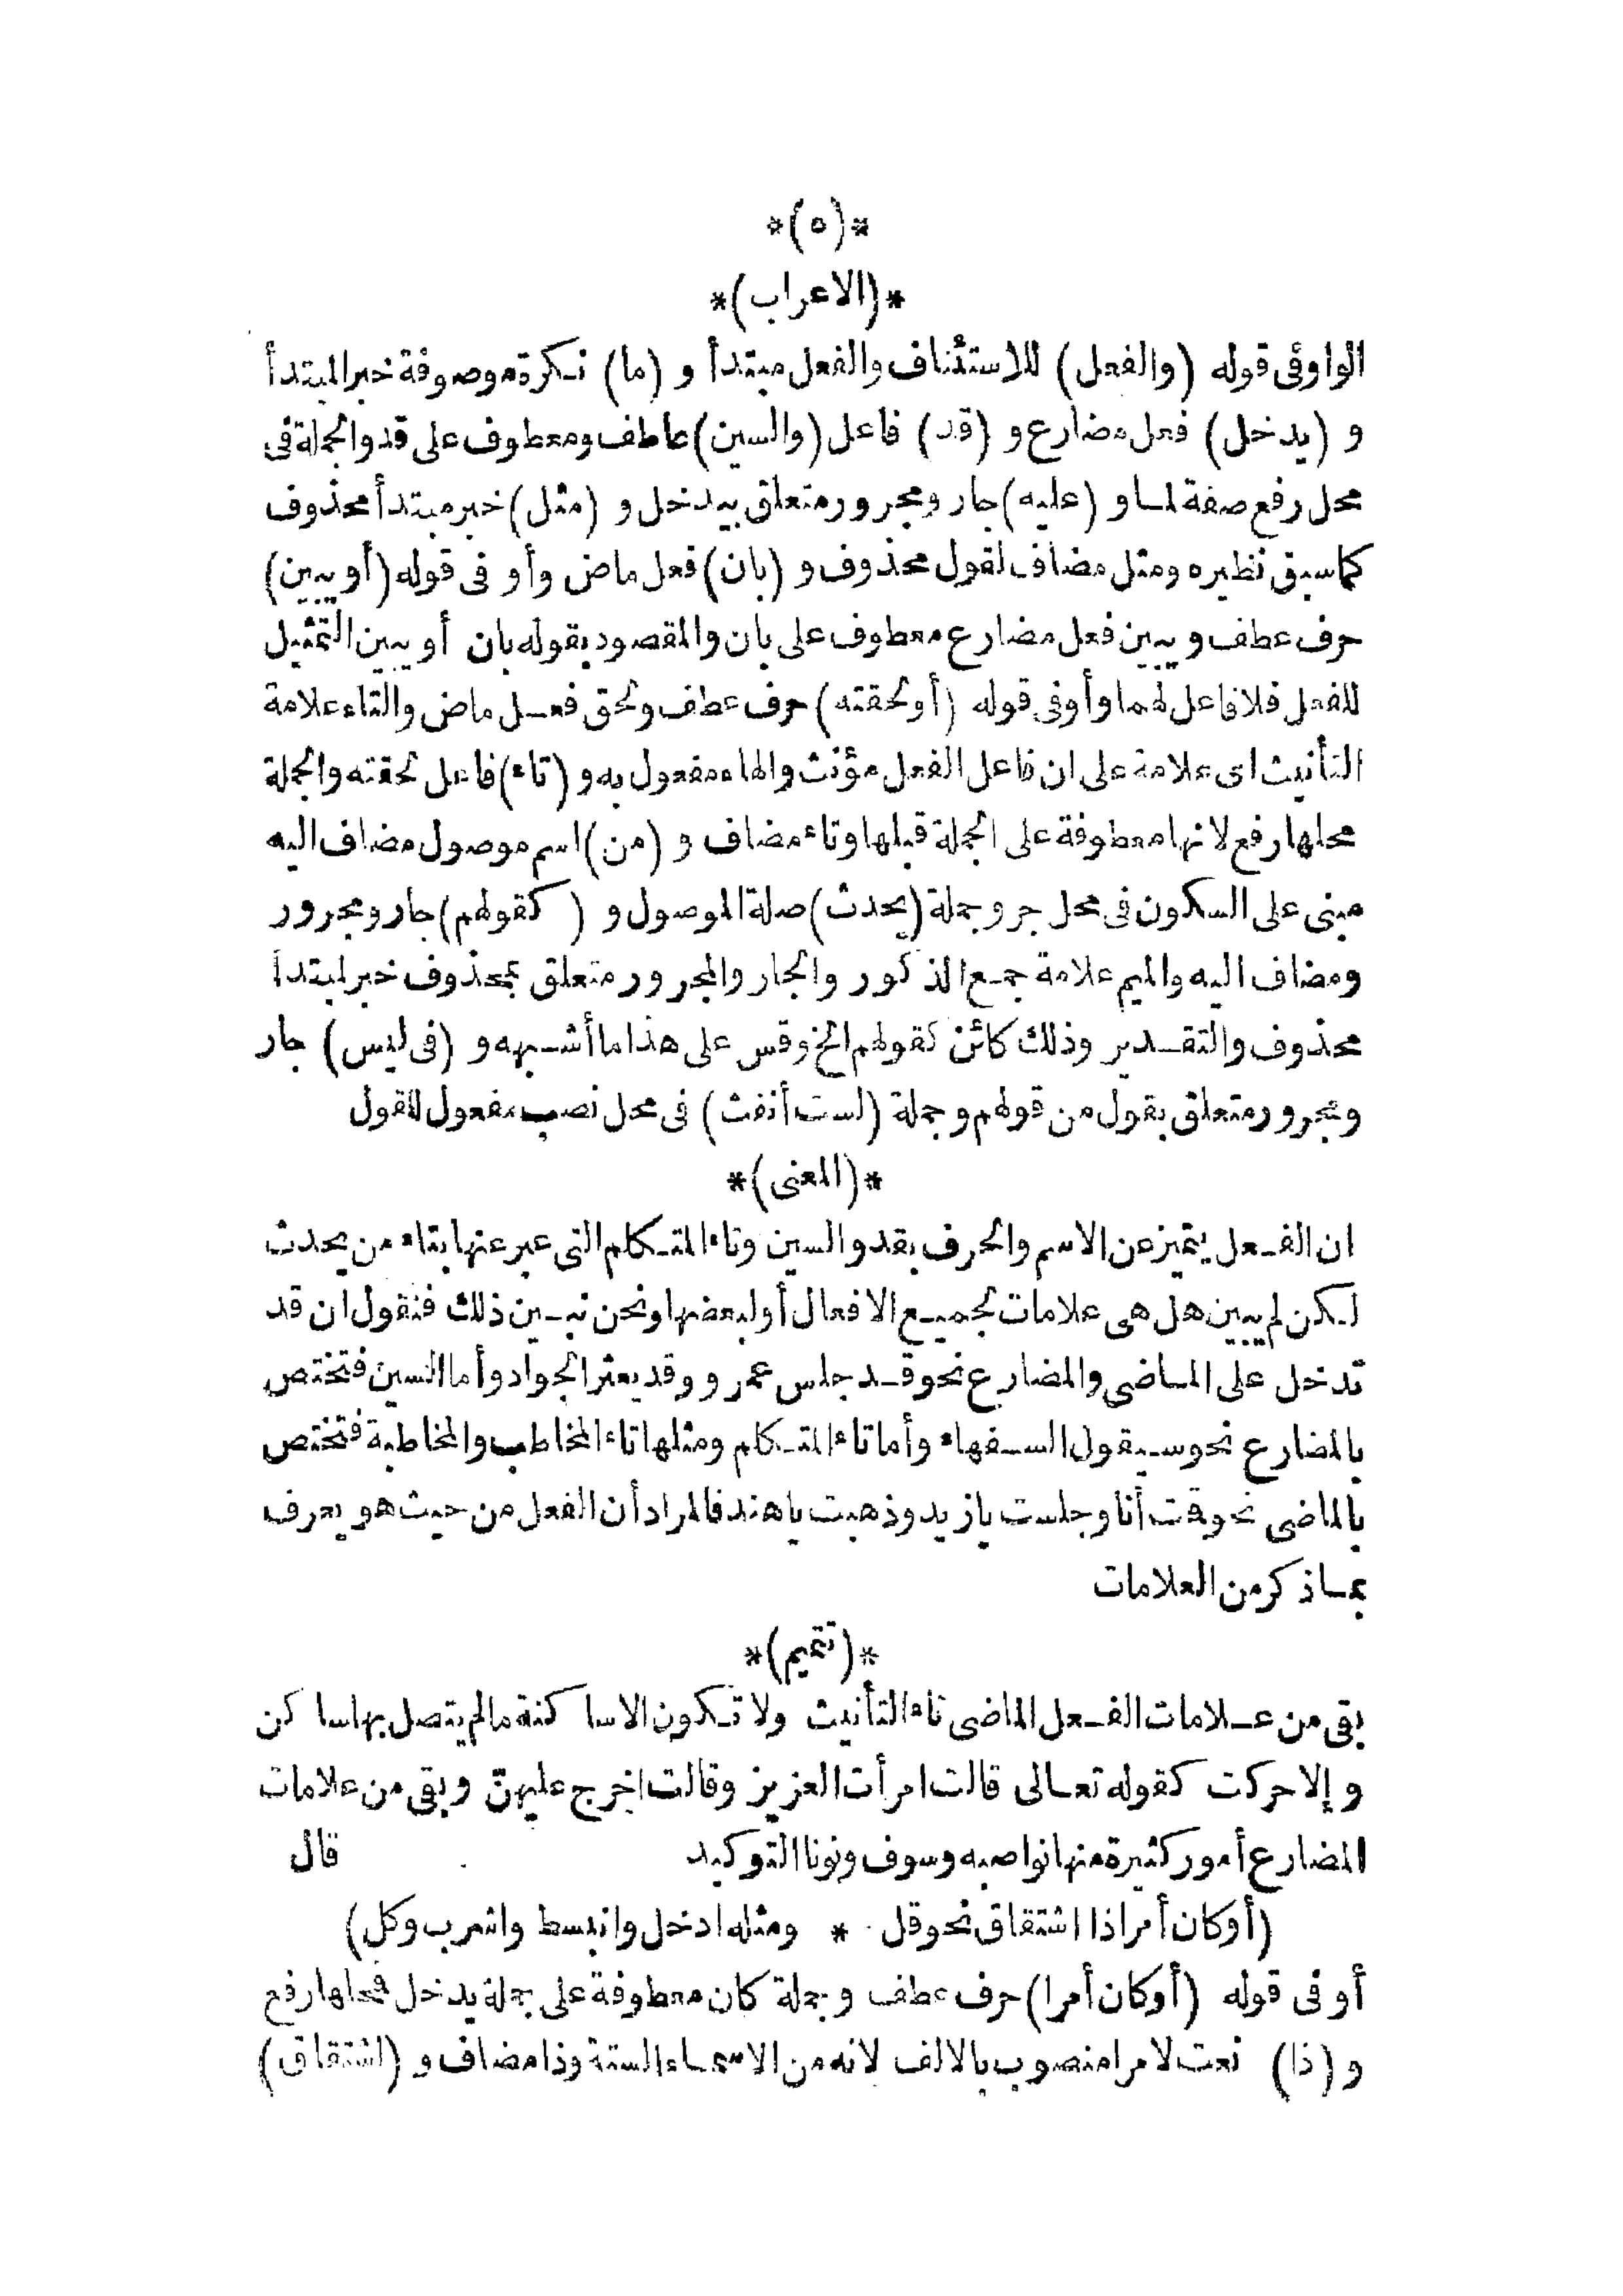 *(٥)*
*(الاعراب)*
الواو فى قوله (والفعل) للاستئناف والفعل مبتدأ و (ما) نكرة موصوفة خبر المبتدأ
و (يدخل) فعل مضارع و (قد) فاعل (والسين) عاطف ومعطوف على قد والجملة فى
محل رفع صفة لما و (عليه) جار ومجرور متعلق بيدخل و (مثل) خبر مبتدأ محذوف
كما سبق نظيره ومثل مضاف لقول محذوف و (بان) فعل ماض وأو فى قوله (أو يبين)
حرف عطف و يبين فعل مضارع معطوف على بان والمقصود بقوله بان أو يبين التمثيل
للفعل فلا فاعل لهما وأو فى قوله (أو لحقته) حرف عطف ولحق فعل ماض والتاء علامة
التأنيث اى علامة على ان فاعل الفعل مؤنث والهاء مفعول به و (تاء) فاعل لحقته والجملة
محلها رفع لانها معطوفة على الجملة قبلها وتاء مضاف و (من) اسم موصول مضاف اليه
مبنى على السكون فى محل جر وجملة (يحدث) صلة الموصول و (كقولهم) جار ومجرور
ومضاف اليه والميم علامة جمع الذكور والجار والمجرور متعلق بمحذوف خبر لمبتدا
محذوف والتقدير وذلك كائن كقولهم الخ وقس على هذا ما أشبهه و (فى ليس) جار
ومجرور متعلق بقول من قولهم وجملة (لست أنفث) فى محل نصب مفعول للقول
*(المعنى)*
ان الفعل يتميز عن الاسم والحرف بقد والسين وتاء المتكلم التى عبر عنها بتاء من يحدث
لكن لم يبين هل هى علامات لجميع الافعال أو لبعضها ونحن نبين ذلك فنقول ان قد
تدخل على الماضى والمضارع نحو قد جلس عمرو وقد يعثر الجواد وأما السين فتختص
بالمضارع نحو سيقول السفهاء وأما تاء المتكلم ومثلها تاء المخاطب والمخاطبة فتختص
بالماضى نحو قمت أنا وجلست يا زيد وذهبت يا هند فالمراد أن الفعل من حيث هو يعرف
بما ذكر من العلامات
*(تتميم)*
بقى من علامات الفعل الماضى تاء التأنيث ولا تكون الا ساكنة ما لم يتصل بها ساكن
وإلا حركت كقوله تعالى قالت امرأت العزيز وقالت اخرج عليهن وبقى من علامات
المضارع أمور كثيرة منها نواصبه وسوف ونونا التوكيد قال
(أو كان أمرا ذا اشتقاق نحو قل * ومثله ادخل وانبسط واشرب وكل)
أو فى قوله (أو كان أمرا) حرف عطف وجملة كان معطوفة على جملة يدخل فمحلها رفع
و (ذا) نعت لامرا منصوب بالالف لانه من الاسماء الستة وذا مضاف و (اشتقاق)